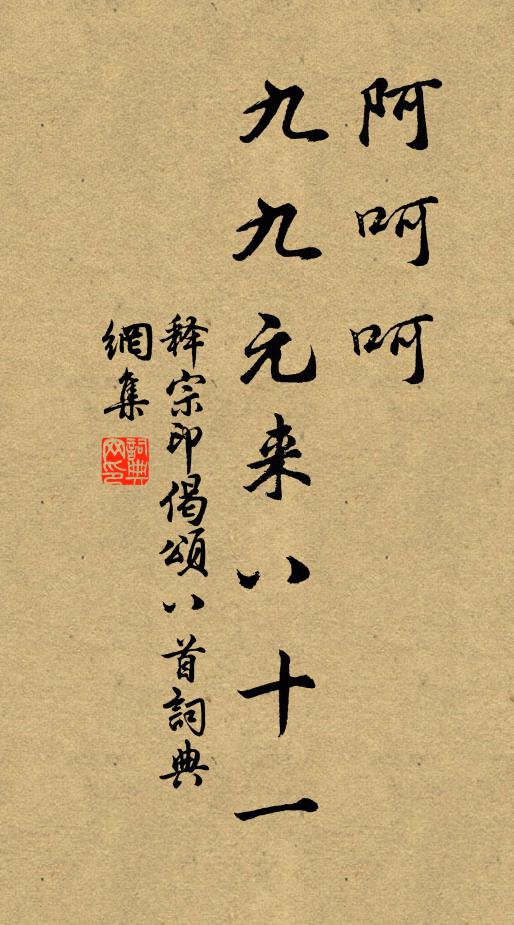 阿呵呵
九九元来八十一
释宗印偈頌八首詞典
網集
詞典網印